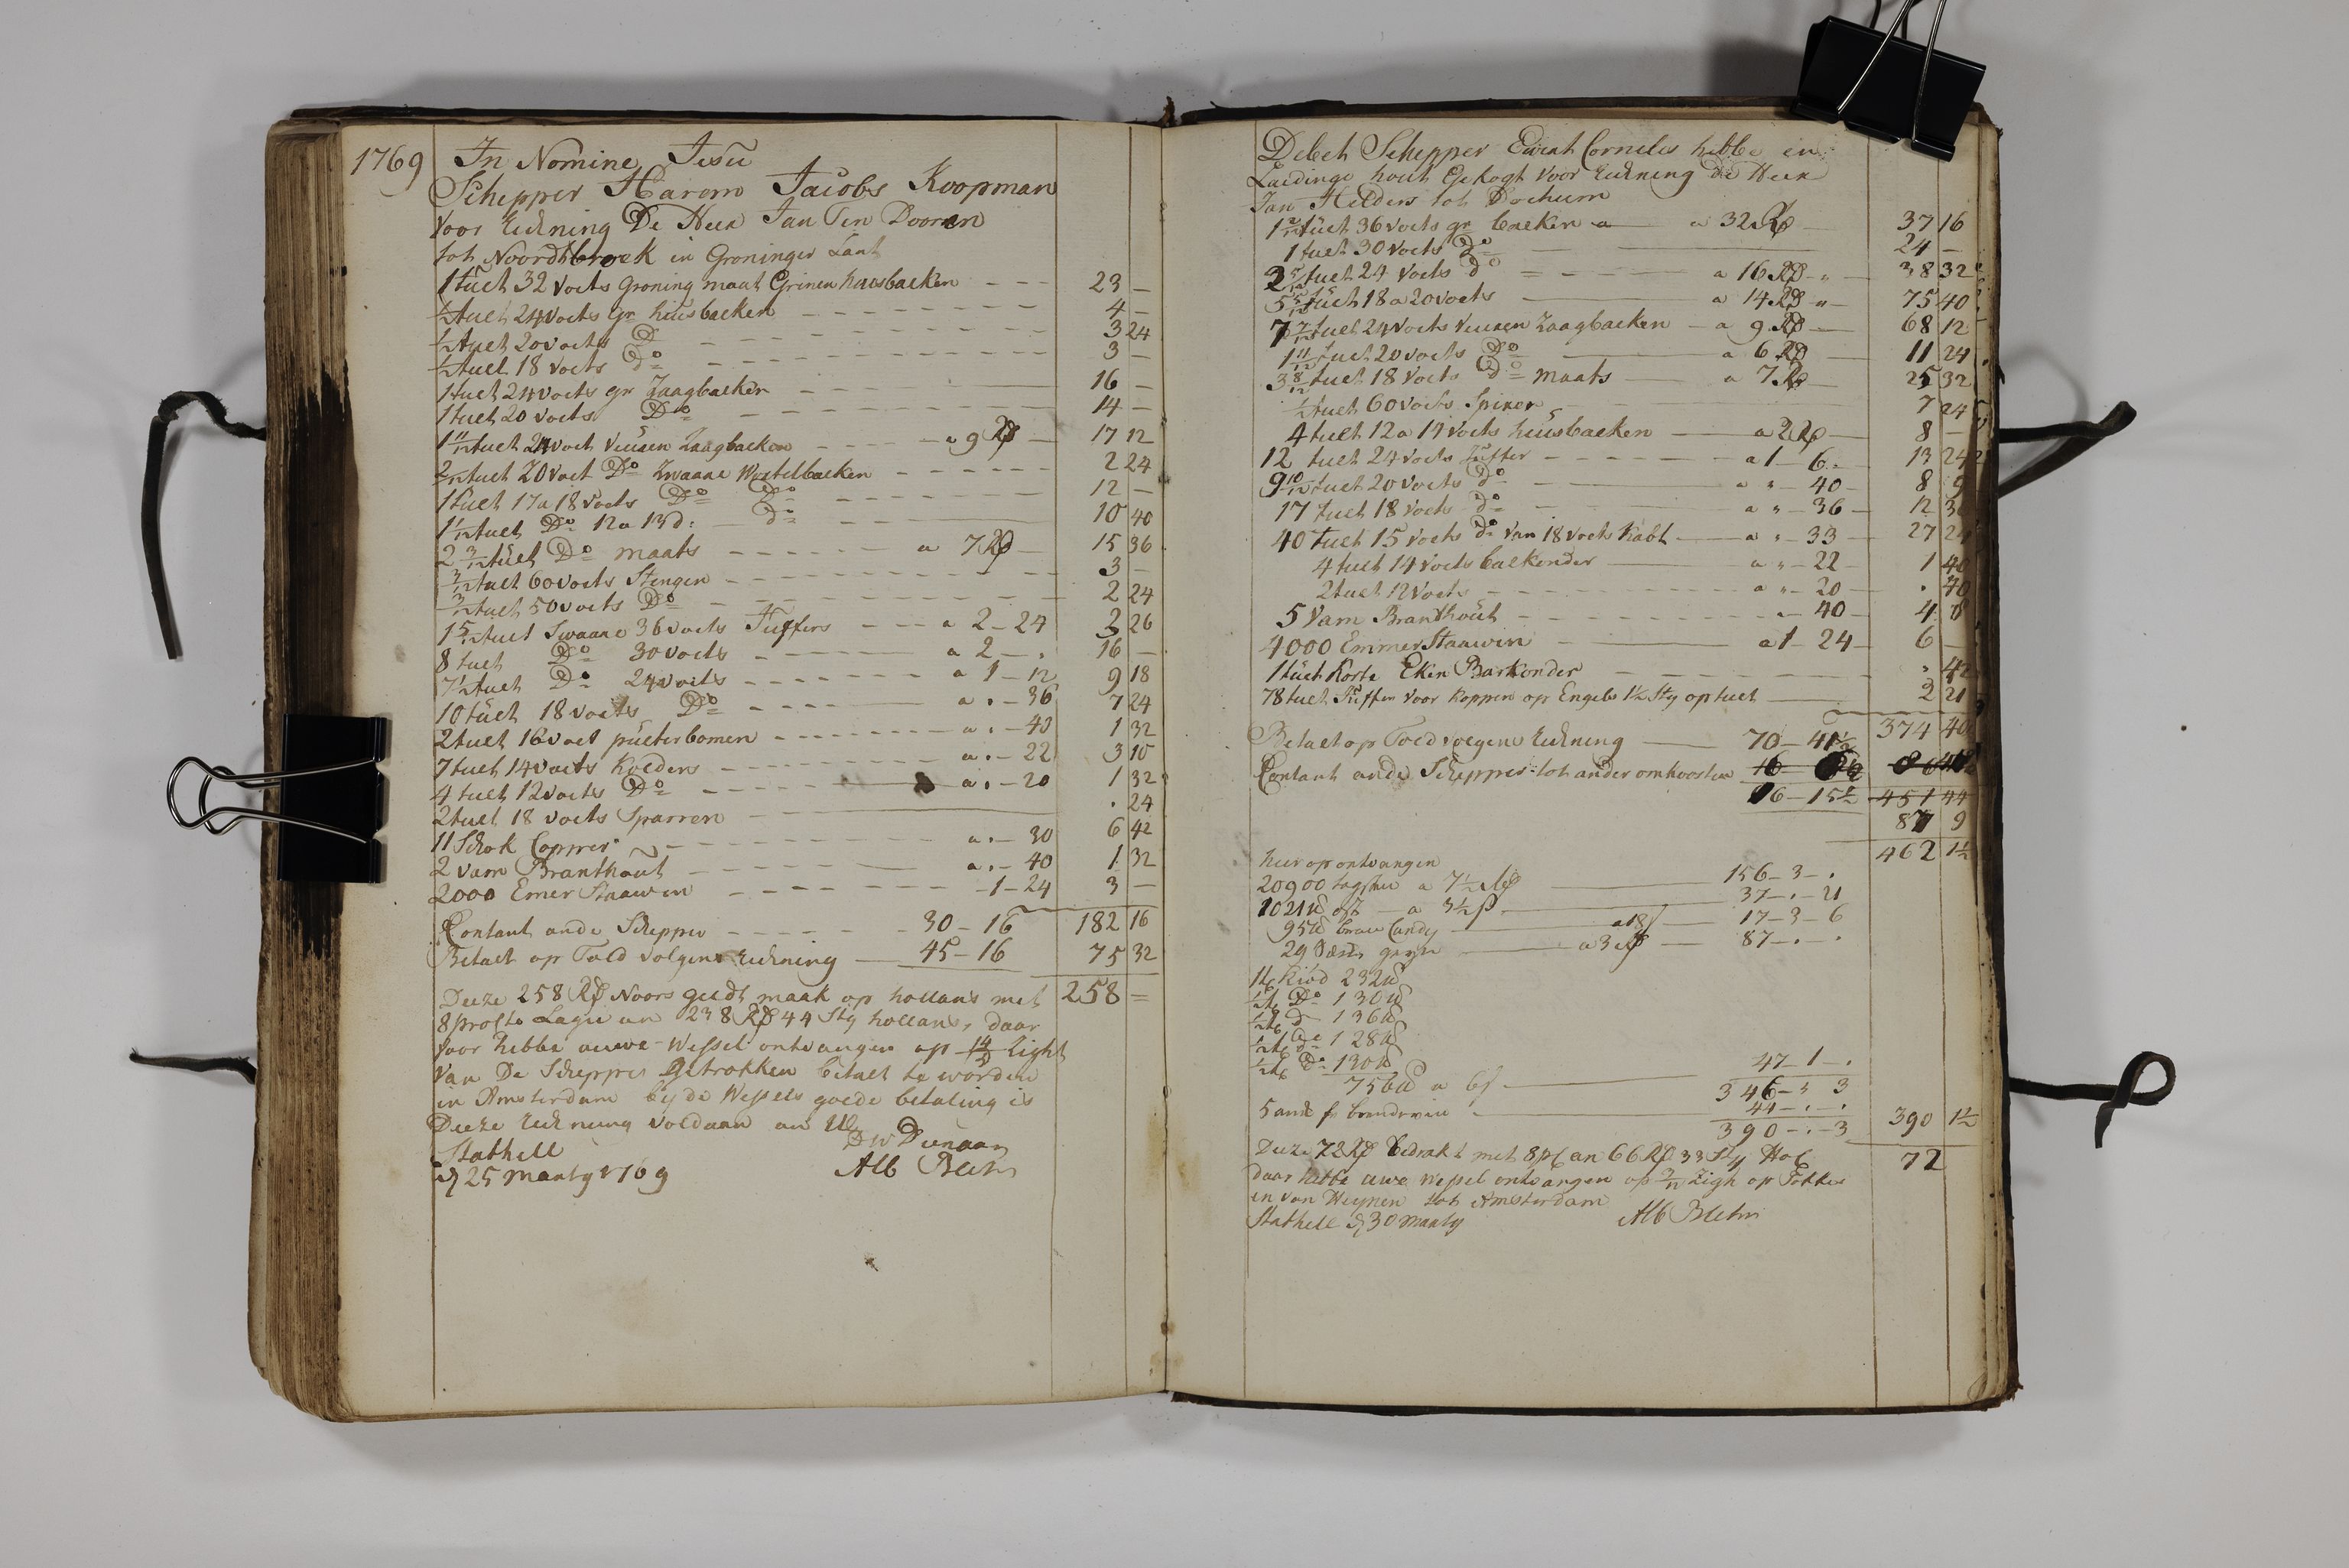 1769 In Nomine Jesu
Schepper Harem Jacobs Koopman
voor Rekning De Heer Jan Ten Dooren
tot Noordtbroek in Groninger Lant
1 tuelt 32 voets Groning maat Grinen huusbaelken - - - 23 —
½ tuelt 24 voets gr huusbaelken - - - 4 —
½ tuelt 20 voets Do - - - 3 24
½ tuelt 18 voets do - - - 3 —
1 tuelt 24 voets gr Zaagbaelken — 16 —
1 tuelt 20 voets Do - - - 14 —
1 11/12 tuelt 24 voet vuuren Zaagbaelken - - - a 9 Rd — 17 12
2/12 tuelt 20 voet Do Zwaare Wortelbaelken - - - 2 24
1 tuelt 17 a 18 voets Do Do - - - 12 —
1 1/12 tuelt Do 12 a 13 d: do - - - 10 40
2 3/12 tuelt Do maats - - - a 7 Rd — 15 36
3/12 tuelt 60 voets Stengen - - - 3 —
3/12 tuelt 50 voets Do - - - 2 24
1 5/12 tuelt Swaare 36 voets Juffers - - - a 2 – 24 3 26
8 tuelt Do 30 voets - - - a 2 – . 16 —
7½ tuelt Do 24 voets - - - a 1 – 12 9 18
10 tuelt 18 voets Do - - - a . – 36 7 24
2 tuelt 16 voet pueterbomen - - - a . – 40 1 32
7 tuelt 14 voets Kolders - - - a . – 22 3 10
4 tuelt 12 voets Do - - - a . – 20 1 32
2 tuelt 18 voets Sparren — . 24
11 Schok Copper - - - a . – 30 6 42
2 vam Branthout - - - a . – 40 1 32
2000 Emer Staaven - - - 1 – 24 3 —
Contant ande Schepper - - - 30 – 16 182 16
Betaelt op Told volgens Rekning — 45 – 16 75 32
Deeze 258 Rd Noors geldt maak op hollans met 258 =
8 procto Lagie an 238 Rd 44 Sty hollans, daar
voor hebbe auwe Wessel ontvangen op 14/d Zight
van De Schepper Getrokken betaelt te worden
in Amsterdam bij de Wessels goede betaling is
Deeze Rekning voldaan an Ul
Stathell DW Dienaar
d 25 Maarty 1769 Alb Blehr
Debet Schepper Ewert Cornelis hebbe in
Laedinge hout Gekogt voor Rekning De Heer
Jan Helders tot Dochum
1 2/12 tuelt 36 voets gr baelken a — a 32 Rd 37 16
1 tuelt 30 voets Do — 24 —
2 5/12 tuelt 24 voets do - - - a 16 Rd — 38 32
5 5/12 tuelt 18 a 20 voets — a 14 Rd — 75 40
7 7/12 tuelt 24 voets vuuren Zaagbaelken — a 9 Rd — 68 12
1 11/12 tuelt 20 voets Do — a 6 Rd — 11 24
3 8/12 tuelt 18 voets Do maats — a 7 Rd — 25 32
½ tuelt 60 voets Spiren - - - 7 24
4 tuelt 12 a 14 voets huusbaelken — a 2 Rd — 8 —
12 tuelt 24 voets Juffer - - - a 1 – 6 – 13 24
9 10/12 tuelt 20 voets Do — a " – 40 – 8 9
17 tuelt 18 voets do — a " – 36 – 12 36
40 tuelt 15 voets do van 18 voets Kabt — a " – 33 27 24
4 tuelt 14 voets baelkonder — a " – 22 – 1 40
2 tuelt 12 voets - - - a " – 20 – . 40
5 Vam Branthout - - - " – 40 – 4 8
4000 Emmer Staawen — a 1 – 24 – 6 —
1 tuelt Korte Eken Barkonder - - - . 42
78 tuelt Juffer voor Koppen op Engels 1½ Sty op tuelt — 2 21
374 40
Betaelt op Told volgens Rekning — 70 – 41½
Contant ande Schepper tot ander omkoosten
16 – 15½ 451 44
87 9
462 1½
hier op ontvangen
20900 tagsten a 7½ Rd — 156 – 3 – .
1021 — a 3½ — 37 – . – 21
95 brau Candy — a 18 17 – 3 – 6
29 — a 3 Rd — 87 – . – .
232
Do 130
d 136
do 128
Do 130 47 – 1 – .
756 a 6 — 346 – 3
5 ank brandewin — 44 – . – .
390 – . – 3 390 1½
Deeze 72 Rd bedrakt met 8 pC an 66 Rd 33 Sty Hol 72
daar hebbe uwe Wessel ontvangen op Zigh op Fokke
en van Weynen tot Amsterdam
Stathell d 30 Maarty Alb Blehr